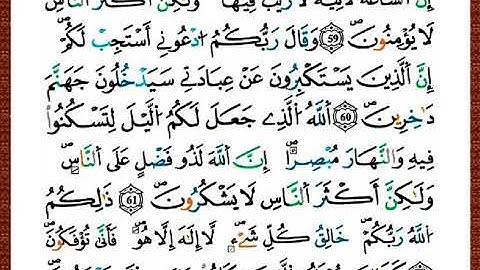 إِنَّ ٱلسَّاعَةَ لَأٓتِيَةٌ لَّا رَيْبَ فِيهَا وَلَٰكِنَّ أَكْثَرَ ٱلنَّاسِ
لَا يُؤْمِنُونَ ۝59 وَقَالَ رَبُّكُمُ ٱدْعُونِيٓ أَسْتَجِبْ لَكُمْ
إِنَّ ٱلَّذِينَ يَسْتَكْبِرُونَ عَنْ عِبَادَتِي سَيَدْخُلُونَ جَهَنَّمَ
دَاخِرِينَ ۝60 ٱللَّهُ ٱلَّذِي جَعَلَ لَكُمُ ٱلَّيْلَ لِتَسْكُنُوا۟
فِيهِ وَٱلنَّهَارَ مُبْصِرًا إِنَّ ٱللَّهَ لَذُو فَضْلٍ عَلَى ٱلنَّاسِ
وَلَٰكِنَّ أَكْثَرَ ٱلنَّاسِ لَا يَشْكُرُونَ ۝61 ذَٰلِكُمُ
ٱللَّهُ رَبُّكُمْ خَالِقُ كُلِّ شَيْءٍ لَّآ إِلَٰهَ إِلَّا هُوَ فَأَنَّىٰ تُؤْفَكُونَ